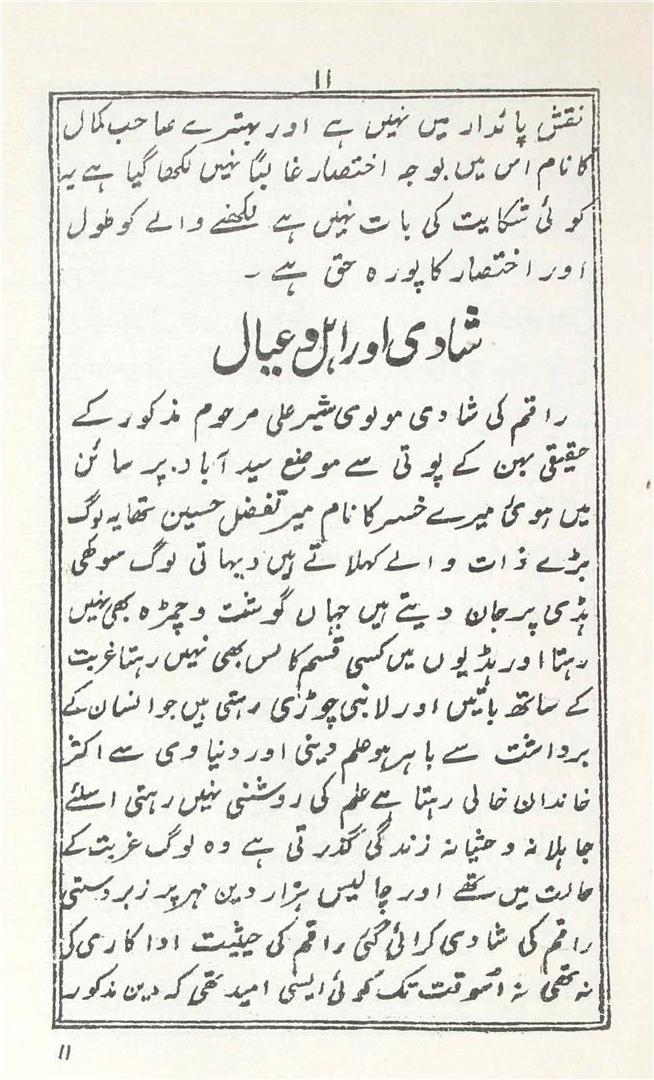 ۱۱
نقش پائدار میں نہیں ہے اور بہترے صاحب کمال
کا نام اس میں بوجہ اختصار غالباً نہیں لکھا گیا ہے یہ
کوئی شکایت کی بات نہیں ہے لکھنے والے کو طول
اور اختصار کا پورہ حق ہے ۔
شادی اور اہل و عیال
راقم کی شادی مولوی شیر علی مرحوم مذکور کے
حقیقی بہن کے پوتی سے موضع سید آباد۔پر سائن
میں ہوئی میرے خسر کا نام میر تفضل حسین تھا یہ لوگ
بڑے ذات والے کہلاتے ہیں دیہاتی لوگ سوکھی
ہڈی پر جان دیتے ہیں جہاں گوشت و چمڑہ بھی نہیں
رہتا اور ہڈیوں میں کسی قسم کا لس بھی نہیں رہتا غربت
کے ساتھ باتیں اور لانبی چوڑی رہتی ہیں جو انسان کے
برداشت سے باہر ہو علم دینی اور دنیاوی سے اکثر
خاندان خالی رہتا ہے علم کی روشنی نہیں رہتی اسلئے
جاہلانہ وحثیانہ زندگی گذرتی ہے وہ لوگ غربت کے
حالت میں تھے اور چالیس ہزار دین مہر پر زبردستی
راقم کی شادی کرائی گئی راقم کی حیثیت ادا کاری کی
نہ تھی نہ اسوقت تک کوئی ایسی امید تھی کہ دین مذکور
۱۱